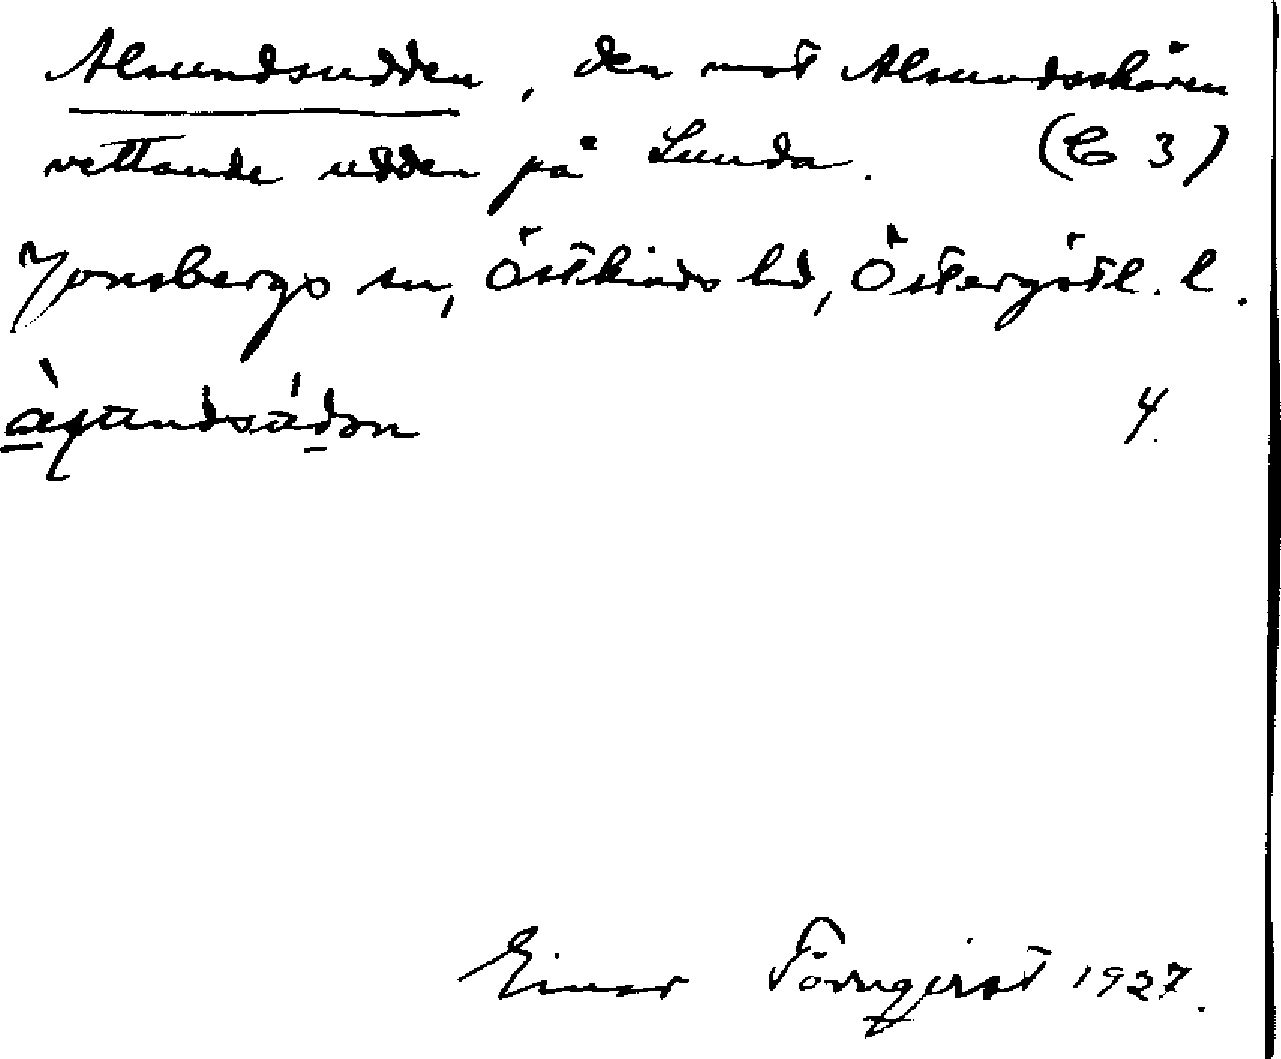 Alsundsudden, den mot Alsundsskären
vettande udden på Lunda. (C 3)
Jonsbergs sn, Östkinds hd, Östergötl. l.
4.
Einar Törnqvist 1927.